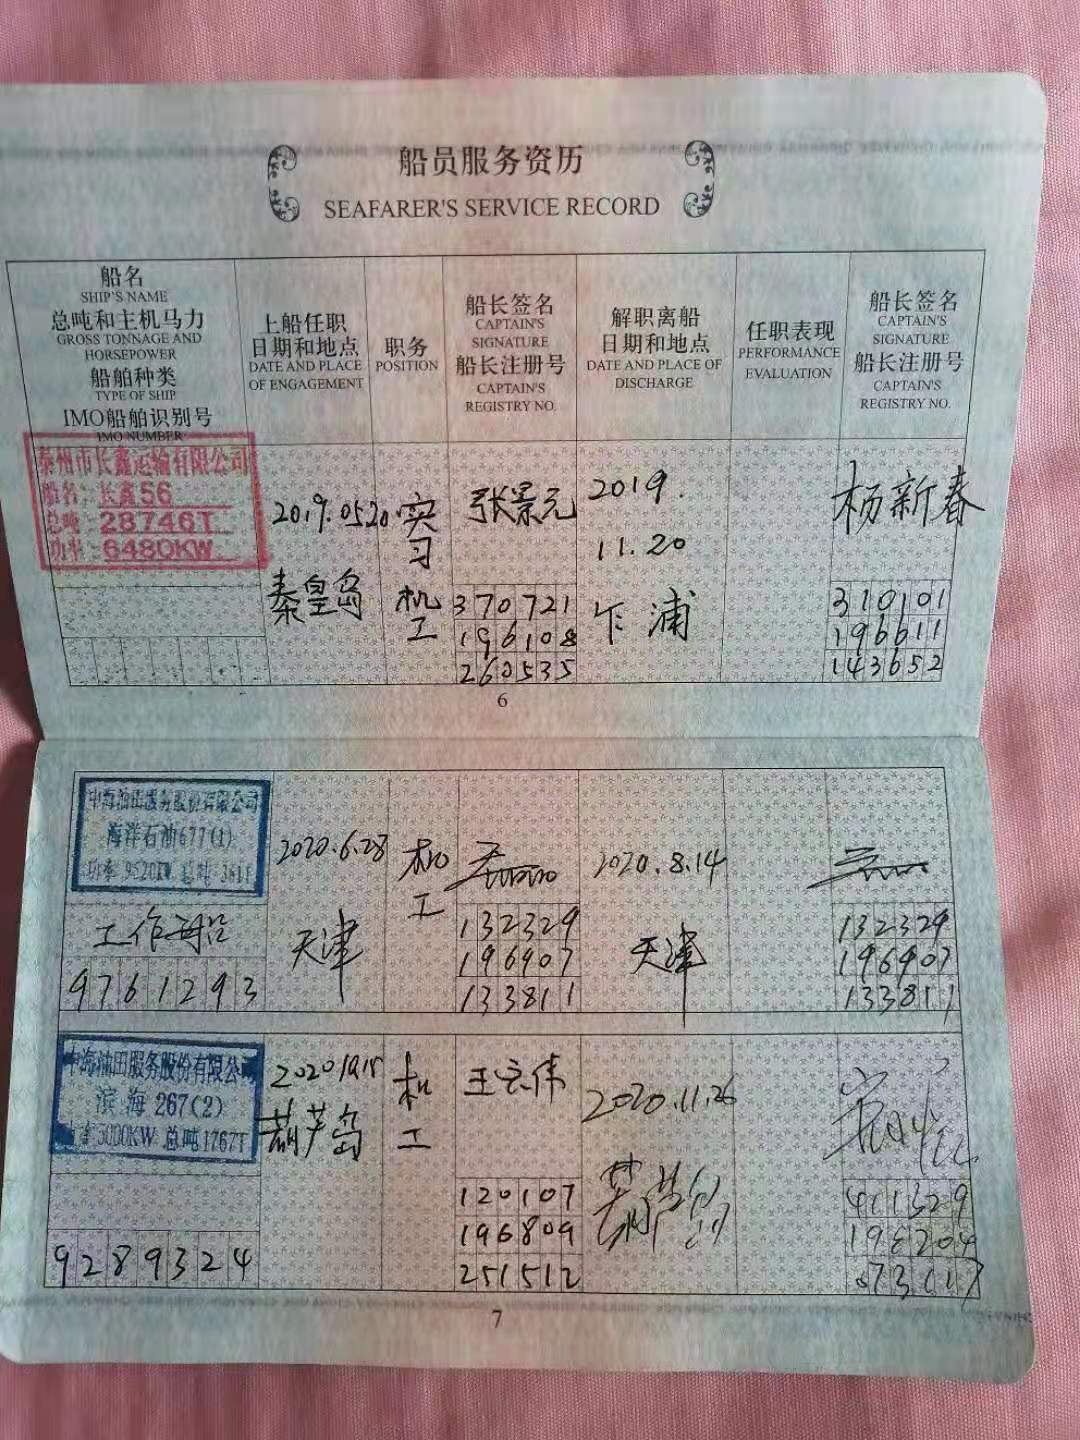 船员服务资历
SEAFARER'S SERVICE RECORD
船名
SHIP'S NAME
总吨和主机马力
GROSS TONNAGE AND
HORSEPOWER
船舶种类
TYPE OF SHIP
IMO船舶识别号
IMO NUMBER
上船任职
日期和地点
DATE AND PLACE
OF ENGAGEMENT
职务
POSITION
船长签名
CAPTAIN'S
SIGNATURE
船长注册号
CAPTAIN'S
REGISTRY NO.
解职离船
日期和地点
DATE AND PLACE OF
DISCHARGE
任职表现
PERFORMANCE
EVALUATION
船长签名
CAPTAIN'S
SIGNATURE
船长注册号
CAPTAIN'S
REGISTRY NO.
泰州市长鑫运输有限公司
船名：长鑫56
总吨：28746T
功率：6480KW
2019.0520
秦皇岛
实习机工
张景元
370721
196108
260535
2019.
11.20
乍浦
杨新春
310101
196611
143652
6
中海油田服务股份有限公司
海洋石油677(1)
功率 9520KW 总吨 3611
工作船
9761293
2020.6.28
天津
机工
132329
196907
133811
2020.8.14
天津
132329
196907
133811
中海油田服务股份有限公司
滨海 267(2)
3000KW 总吨 1767T
9289324
葫芦岛
机工
王宏伟
120107
196809
251512
2020.11.26
葫芦岛
411329
7